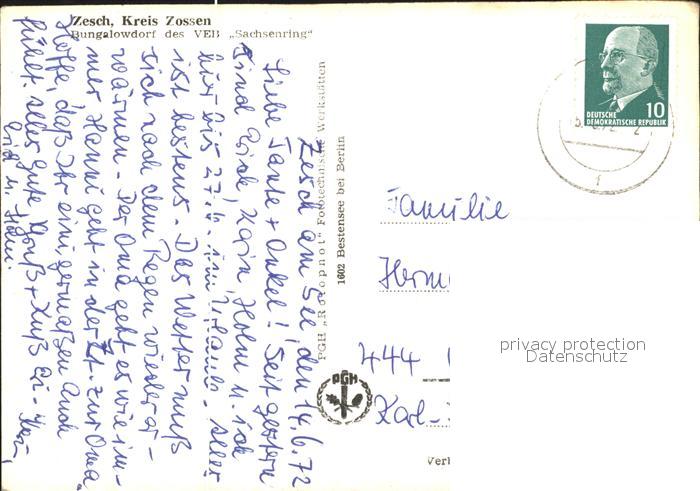 Zesch, Kreis Zossen
Bungalowdorf des VEB „Sachsenring"
Zesch am See, den 14.6.72
Liebe Tante + Onkel! Seit gestern
sind Erich, Karin, Holm u. ich
hier bis 27.6. im Urlaub. Alles
ist bestens. Das Wetter muß
sich nach dem Regen wieder er-
wärmen. Der Oma geht es wie im-
mer. Hanni geht in der Zt. zur Oma.
Hoffe, daß Ihr einigermaßen Euch
fühlt. Alles Gute Gruß + Kuß
Erich u. Holm.
PGH „Rotophot" Fototechnische Werkstätten
1602 Bestensee bei Berlin
PGH
DEUTSCHE
DEMOKRATISCHE REPUBLIK
10
Familie
Herm
444
Karl-
Verk
privacy protection
Datenschutz